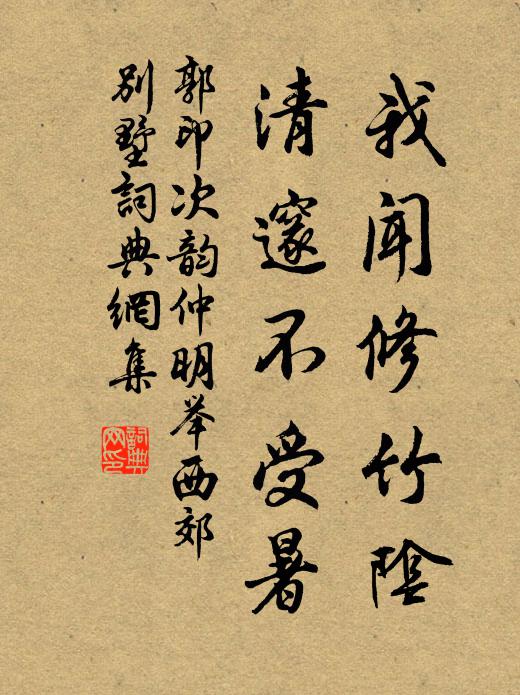 我闻修竹阴
清邃不受暑
郭印次韵仲明举西郊
别墅词典網集
詞典网印